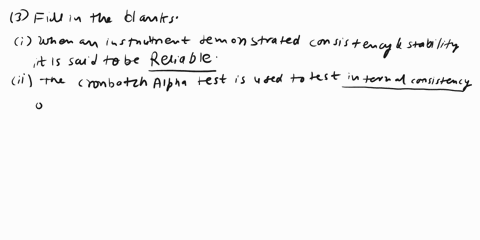 (3) Fill in the blanks.
(i) when an instrument demonstrated consistency & stability
it is said to be Reliable.
(ii) The cronbatch Alpha test is used to test internal consistency
o